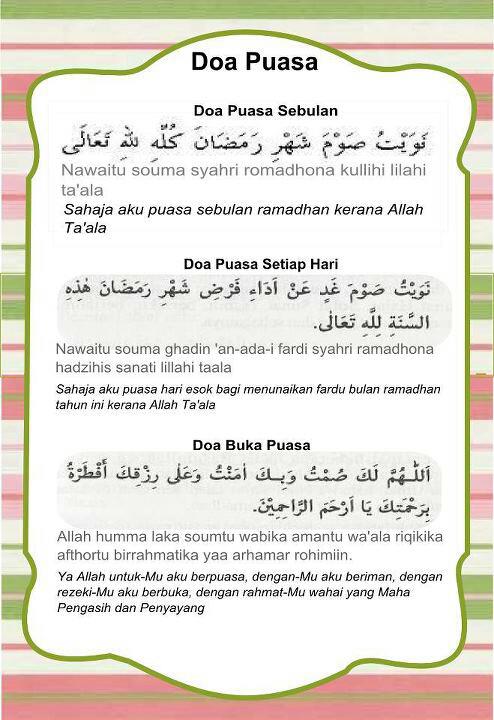 Doa Puasa
Doa Puasa Sebulan
نَوَيْتُ صَوْمَ شَهْرِ رَمَضَانَ كُلِّهِ لِلّٰهِ تَعَالَى
Nawaitu souma syahri romadhona kullihi lilahi
ta'ala
Sahaja aku puasa sebulan ramadhan kerana Allah
Ta'ala
Doa Puasa Setiap Hari
نَوَيْتُ صَوْمَ غَدٍ عَنْ اَدَاءِ فَرْضِ شَهْرِ رَمَضَانَ هٰذِهِ
السَّنَةِ لِلّٰهِ تَعَالٰى.
Nawaitu souma ghadin 'an-ada-i fardi syahri ramadhona
hadzihis sanati lillahi taala
Sahaja aku puasa hari esok bagi menunaikan fardu bulan ramadhan
tahun ini kerana Allah Ta'ala
Doa Buka Puasa
اَللّٰهُمَّ لَكَ صُمْتُ وَبِكَ اٰمَنْتُ وَعَلٰى رِزْقِكَ أَفْطَرْتُ
بِرَحْمَتِكَ يَا اَرْحَمَ الرَّاحِمِيْنَ.
Allah humma laka soumtu wabika amantu wa'ala riqikika
afthortu birrahmatika yaa arhamar rohimiin.
Ya Allah untuk-Mu aku berpuasa, dengan-Mu aku beriman, dengan
rezeki-Mu aku berbuka, dengan rahmat-Mu wahai yang Maha
Pengasih dan Penyayang